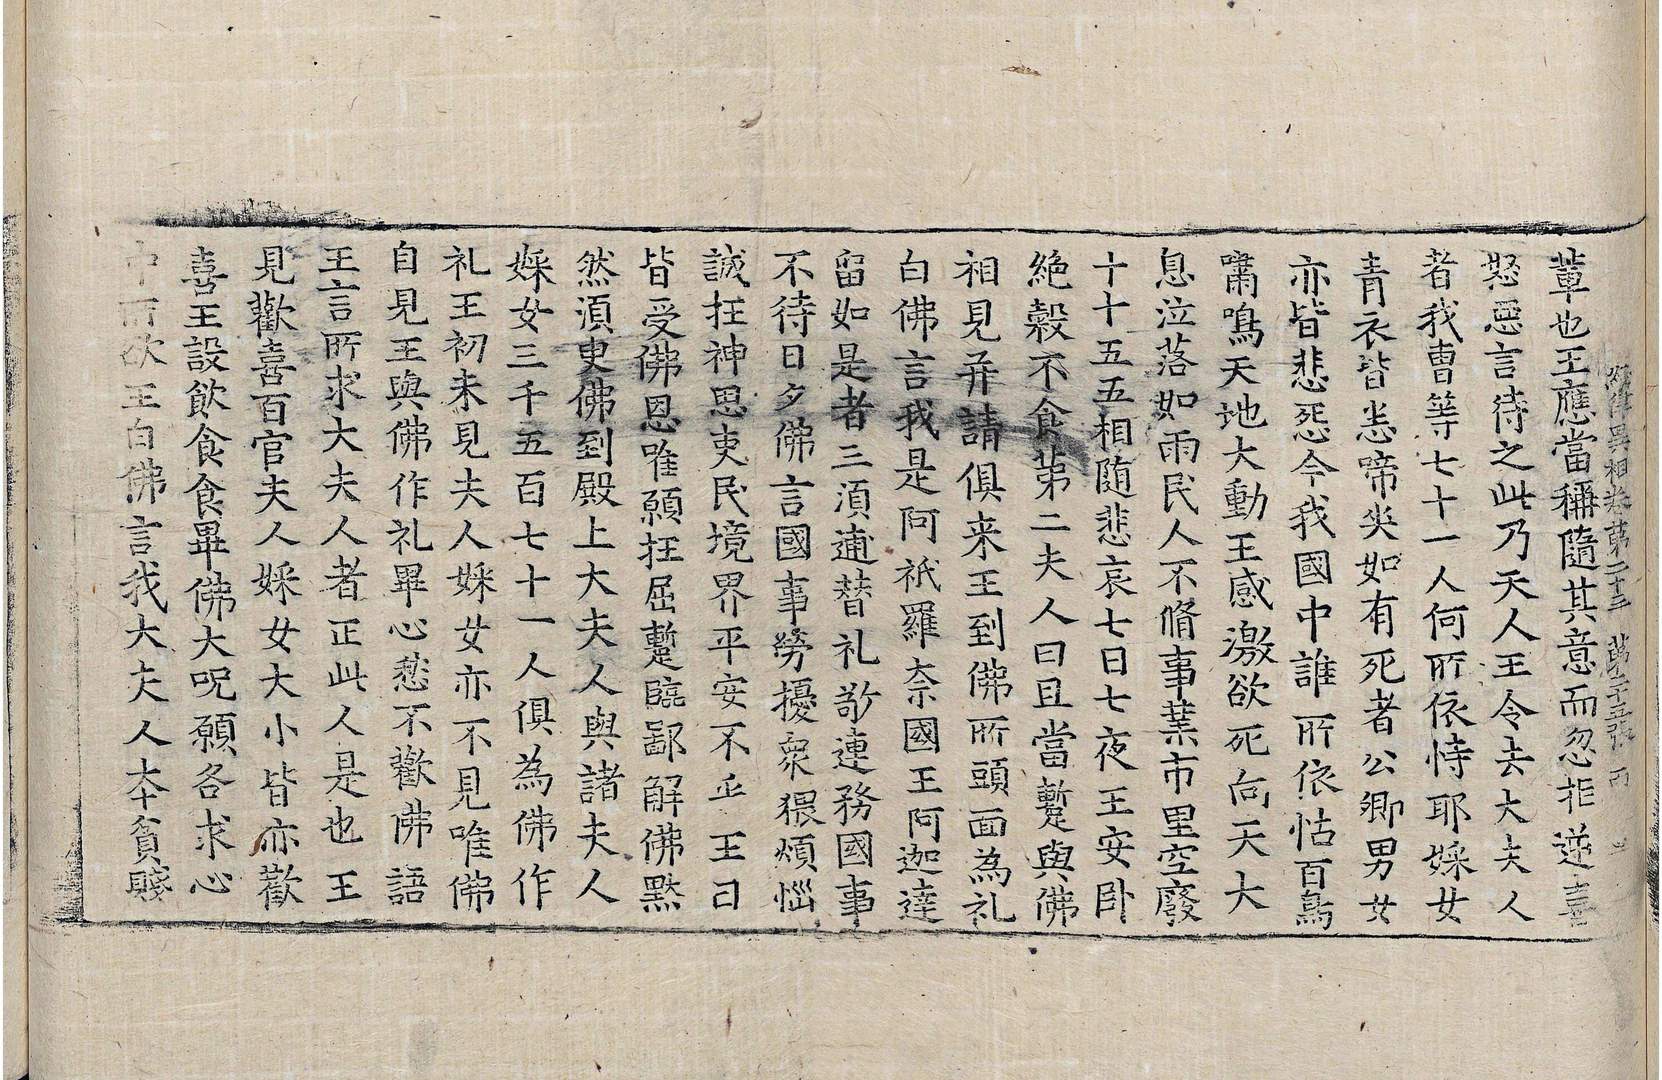 經律異相卷第二十三 第二十五張 丙
葷也王應當稱隨其意而忽拒逆喜
怒惡言待之此乃天人王令去大夫人
者我曹等七十一人何所依恃耶婇女
青衣皆恙啼哭如有死者公卿男女
亦皆悲怨今我國中誰所依怙百鳥
嘯鳴天地大動王感激欲死向天大
息泣落如雨民人不脩事業市里空廢
十十五五相隨悲哀七日七夜王安卧
絶糓不食苐二夫人曰且當蹔與佛
相見并請俱来王到佛所頭面為礼
白佛言我是阿祇羅奈國王阿迦達
留如是者三湏逋替礼敬連務國事
不待日夕佛言國事勞擾衆猥煩惱
誠抂神思吏民境界平安不㱏王曰
皆受佛恩唯願抂屈蹔臨鄙解佛黙
然湏臾佛到殿上大夫人與諸夫人
婇女三千五百七十一人俱為佛作
礼王初未見夫人婇女亦不見唯佛
自見王與佛作礼畢心愁不歡佛語
王言所求大夫人者正此人是也王
見歡喜百官夫人婇女大小皆亦歡
喜王設飲食食畢佛大呪願各求心
中所欲王白佛言我大夫人本貧賤